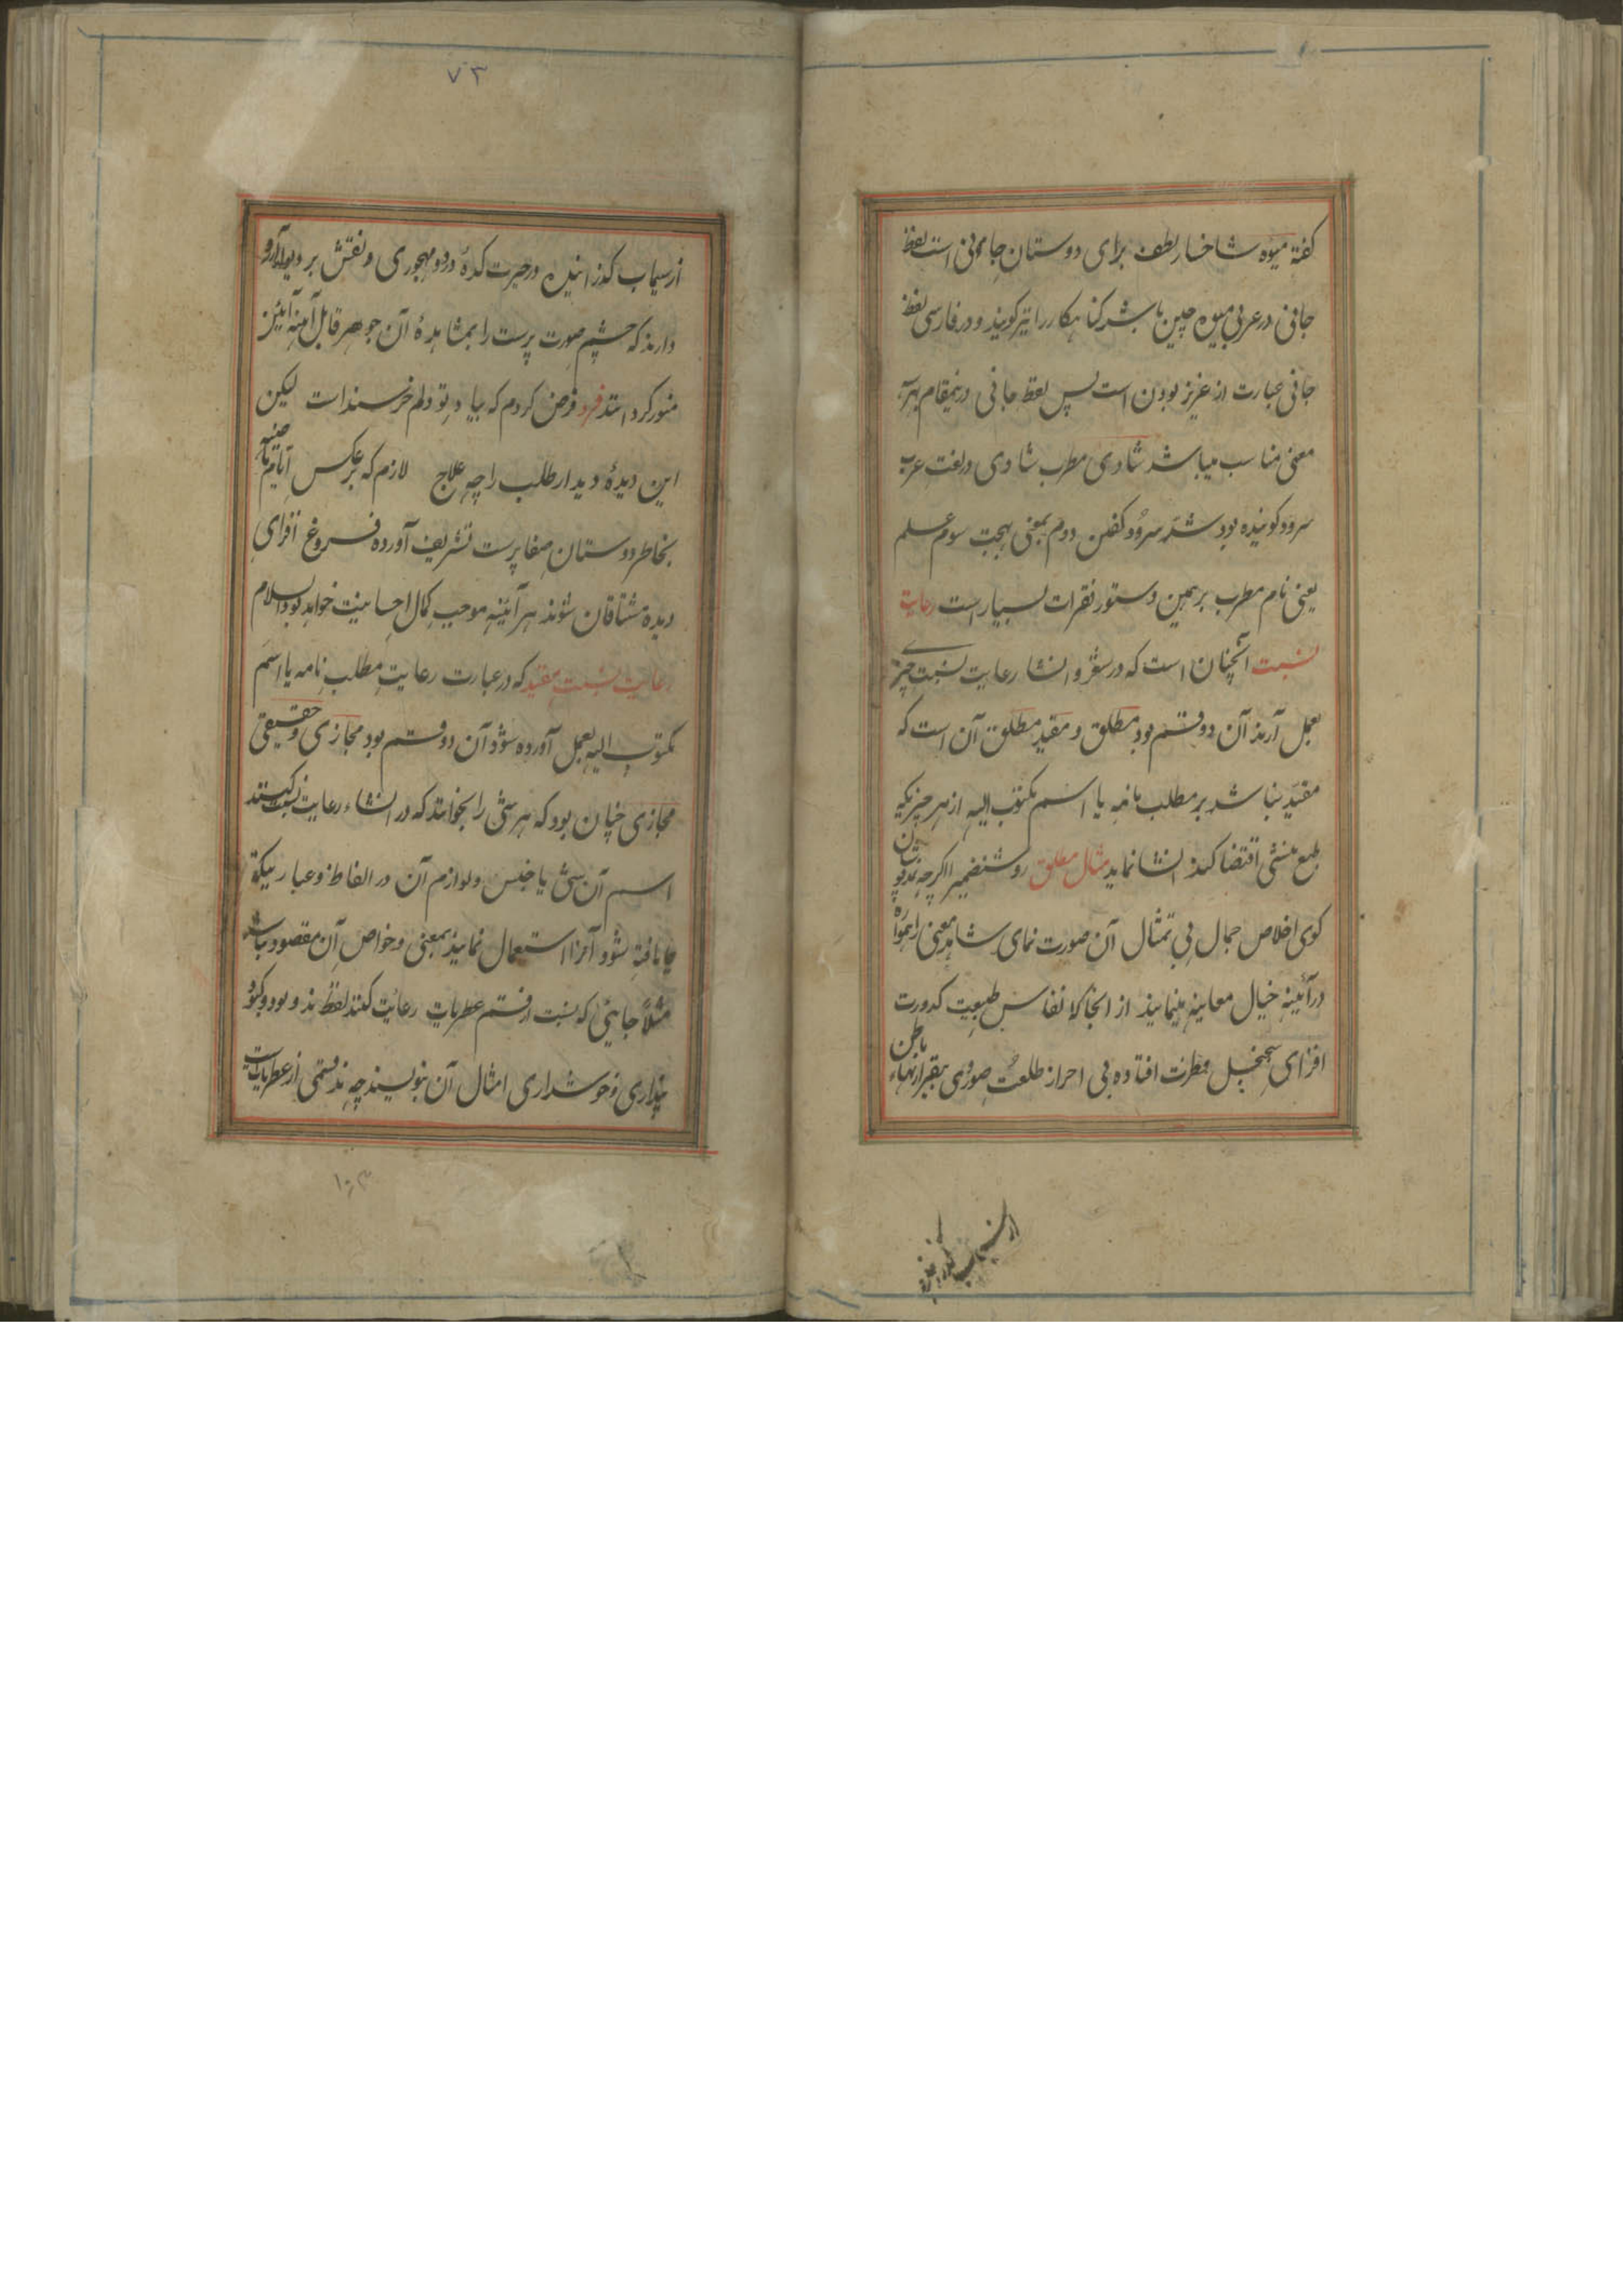 گفته میوه شاخسار لطف برای دوستان جانی است لفظ
جانی در عربی میوه چین باشد گناهکار را نیز گویند و در فارسی لفظ
جانی عبارت از عزیز بودن است پس لفظ جانی درینمقام بهر
معنی مناسب میباشد شادی مطرب شادی در لغت عرب
سرود گوینده بود شد سرود گفتن دوم بمعنی بهجت سوم علم
یعنی نام مطرب برهمین دستور فقرات بسیار است رعایت
نسبت آنچنان است که در شعر و انشا رعایت نسبت چیزے
بعمل آرند آن دو قسم بود مطلق و مقید مطلق آن است که
مقید نباشد بر مطلب نامه یا اسم مکتوب الیه از هر چیزیکه
طبع منشی اقتضا کند انشا نماید مثال مطلق روشنضمیرا اگرچه
کوی اخلاص جمال بی تمثال آن صورت نمای شاهد معنی را همواره
در آئینه خیال معاینه مینمایند از انجا که انفاس طبیعت کدورت
افزای سجنجل فطرت افتاده بی احراز طلعت صوری بیقرار تنهاء باطن
از سیماب گذرانیده
۷۳
از سیماب گذرانیده در حیرت کدهٔ درد مهجوری و نقش بر دیوار آرزو
دارند که چشم صورت پرست را بمشاهدهٔ آن جوهر قابل آینه آئین
منور کرد استد فرد فرض کردم که بیاد تو دلم خرسند است لیکن
این دیدهٔ دیدار طلب را چه علاج لازم که برعکس ایام
بخاطر دوستان صفا پرست تشریف آورده فروغ افزای
دیده مشتاقان شوند هر آئینه موجب کمال احسانیت خواهد بود والسلام
رعایت نسبت مقید که در عبارت رعایت مطلب نامه یا اسم
مکتوب الیه بعمل آورده شود و آن دو قسم بود مجازی و حقیقی
مجازی چنان بود که هر شئ را بخواهند که در انشاء رعایت نسبت کنند
اسم آن شئ یا جنس و لوازم آن در الفاظ و عبارتیکه
جا یافته شود آنرا استعمال نمایند بمعنی و خواص آن مقصود نباشد
مثلا جائی که نسبت از قسم عطریات رعایت کنند لفظ ند و بود و
پنداری و خوشداری امثال آن بنویسند چه ند قسمی از عطریات است
۱۰۳